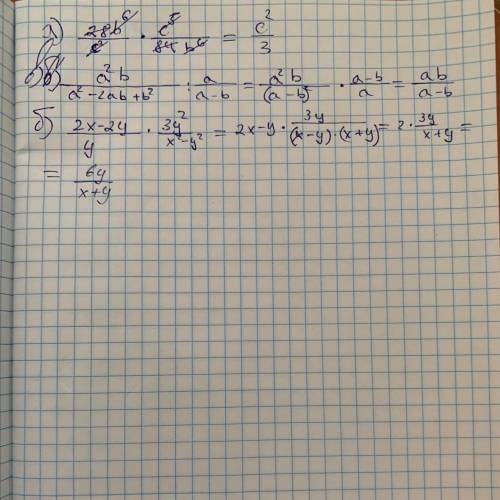 а) 28b⁶/c³ · c⁵/84b⁶ = c²/3
в) a²b/(a²-2ab+b²) : a/(a-b) = a²b/(a-b)² · (a-b)/a = ab/(a-b)
б) (2x-2y)/y · 3y²/(x²-y²) = 2x-y · 3y/((x-y)·(x+y)) = 2 · 3y/(x+y) =
= 6y/(x+y)